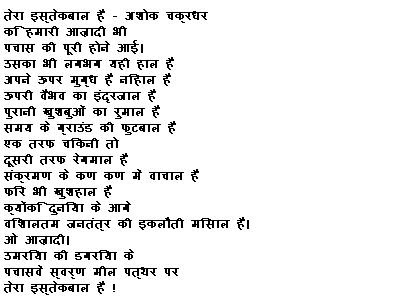 तेरा इस्तेकबाल है - अशोक चक्रधर
कि हमारी आज़ादी भी
पचास की पूरी होने आई।
उसका भी लगभग यही हाल है
अपने ऊपर मुग्ध है निहाल है
ऊपरी वैभव का इंद्रजाल है
पुरानी ख़ुशबुओं का रुमाल है
समय के ग्राउंड की फुटबाल है
एक तरफ चिकनी तो
दूसरी तरफ रेगमाल है
संक्रमण के कण कण में वाचाल है
फिर भी खुशहाल है
क्योंकि दुनिया के आगे
विशालतम जनतंत्र की इकलौती मिसाल है।
ओ आज़ादी।
उमरिया की डगरिया के
पचासवें स्वर्ण मील पत्थर पर
तेरा इस्तेकबाल है !